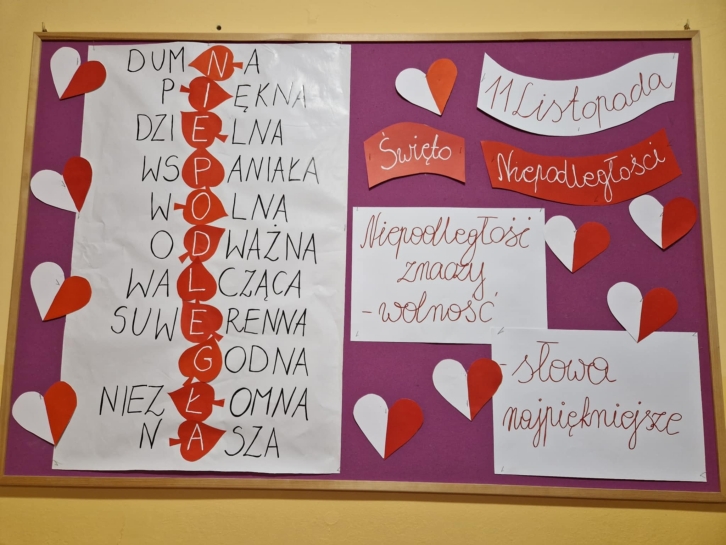 DUMNA
PIĘKNA
DZIELNA
WSPANIAŁA
WOLNA
ODWAŻNA
WALCZĄCA
SUWERENNA
GODNA
NIEZŁOMNA
NASZA
11 Listopada
Święto
Niepodległości
Niepodległość
znaczy
- wolność
- słowa
najpiękniejsze